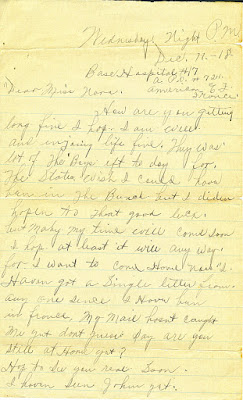 Wednesdays Night PM
Dec. 11-18
Base Hospital #17
A.P.O. # 721
American E.F.
France
Dear Miss Nora.
How are you gitting
long fine I hop. I am well
and injoing life fine. They was
lot of The Boys eft to day for
The States wish I could have
ben in The Bunch but I diden
hapen to That good luck.
But Maby my time will come soon
I hop at least it will any way.
for I want to come Home now
Haven got a Single letter from
any one sence I Have ben
in france. My Mail hasnt caught
me yet dont guess. Say are you
still at Home yet?
Hop to see you real soon.
I haven seen John yet.